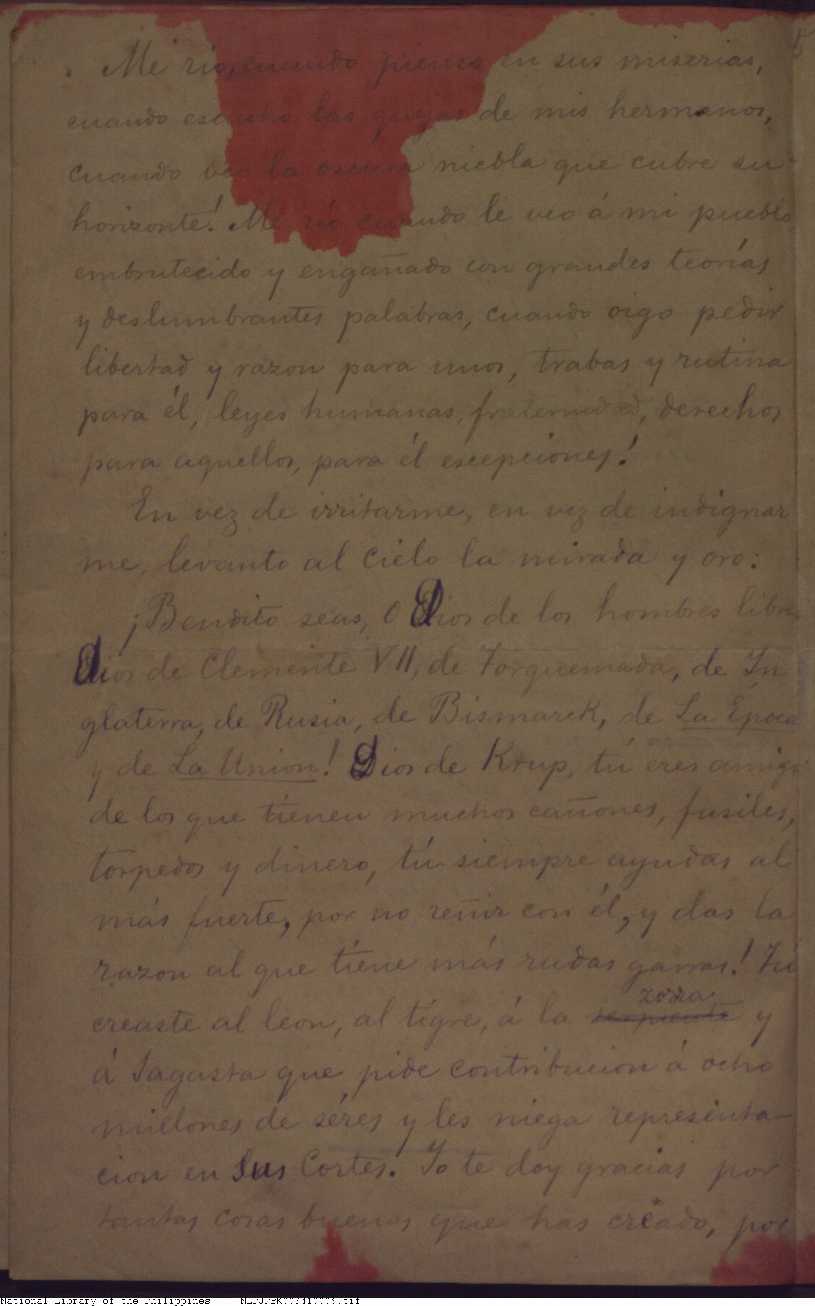 Me rio, cuando pienso en sus miserias,
cuando escucho las quejas de mis hermanos,
cuando veo la oscura niebla que cubre su
horizonte! Me rio cuando le veo á mi pueblo
embrutecido y engañado con grandes teorías
y deslumbrantes palabras, cuando oigo pedir
libertad y razon para unos, trabas y rutina
para él, leyes humanas, fraternidad, derechos
para aquellos, para él escepciones!
En vez de irritarme, en vez de indignar
me, levanto al cielo la mirada y oro:
¡Bendito seas, O Dios de los hombres libres
Dios de Clemente VII, de Torquemada, de In
glaterra, de Rusia, de Bismarck, de La Época
y de La Union! Dios de Krup, tú eres amigo
de los que tienen muchos cañones, fusiles,
torpedos y dinero, tú siempre ayudas al
más fuerte, por no reñir con él, y das la
razon al que tiene más rudas garras! Tú
creaste al leon, al tigre, á la zorra y
á Sagasta que pide contribucion á ocho
millones de séres y les niega representa-
cion en sus Cortes. Yo te doy gracias por
tantas cosas buenas que has creado, por
National Library of the Philippines